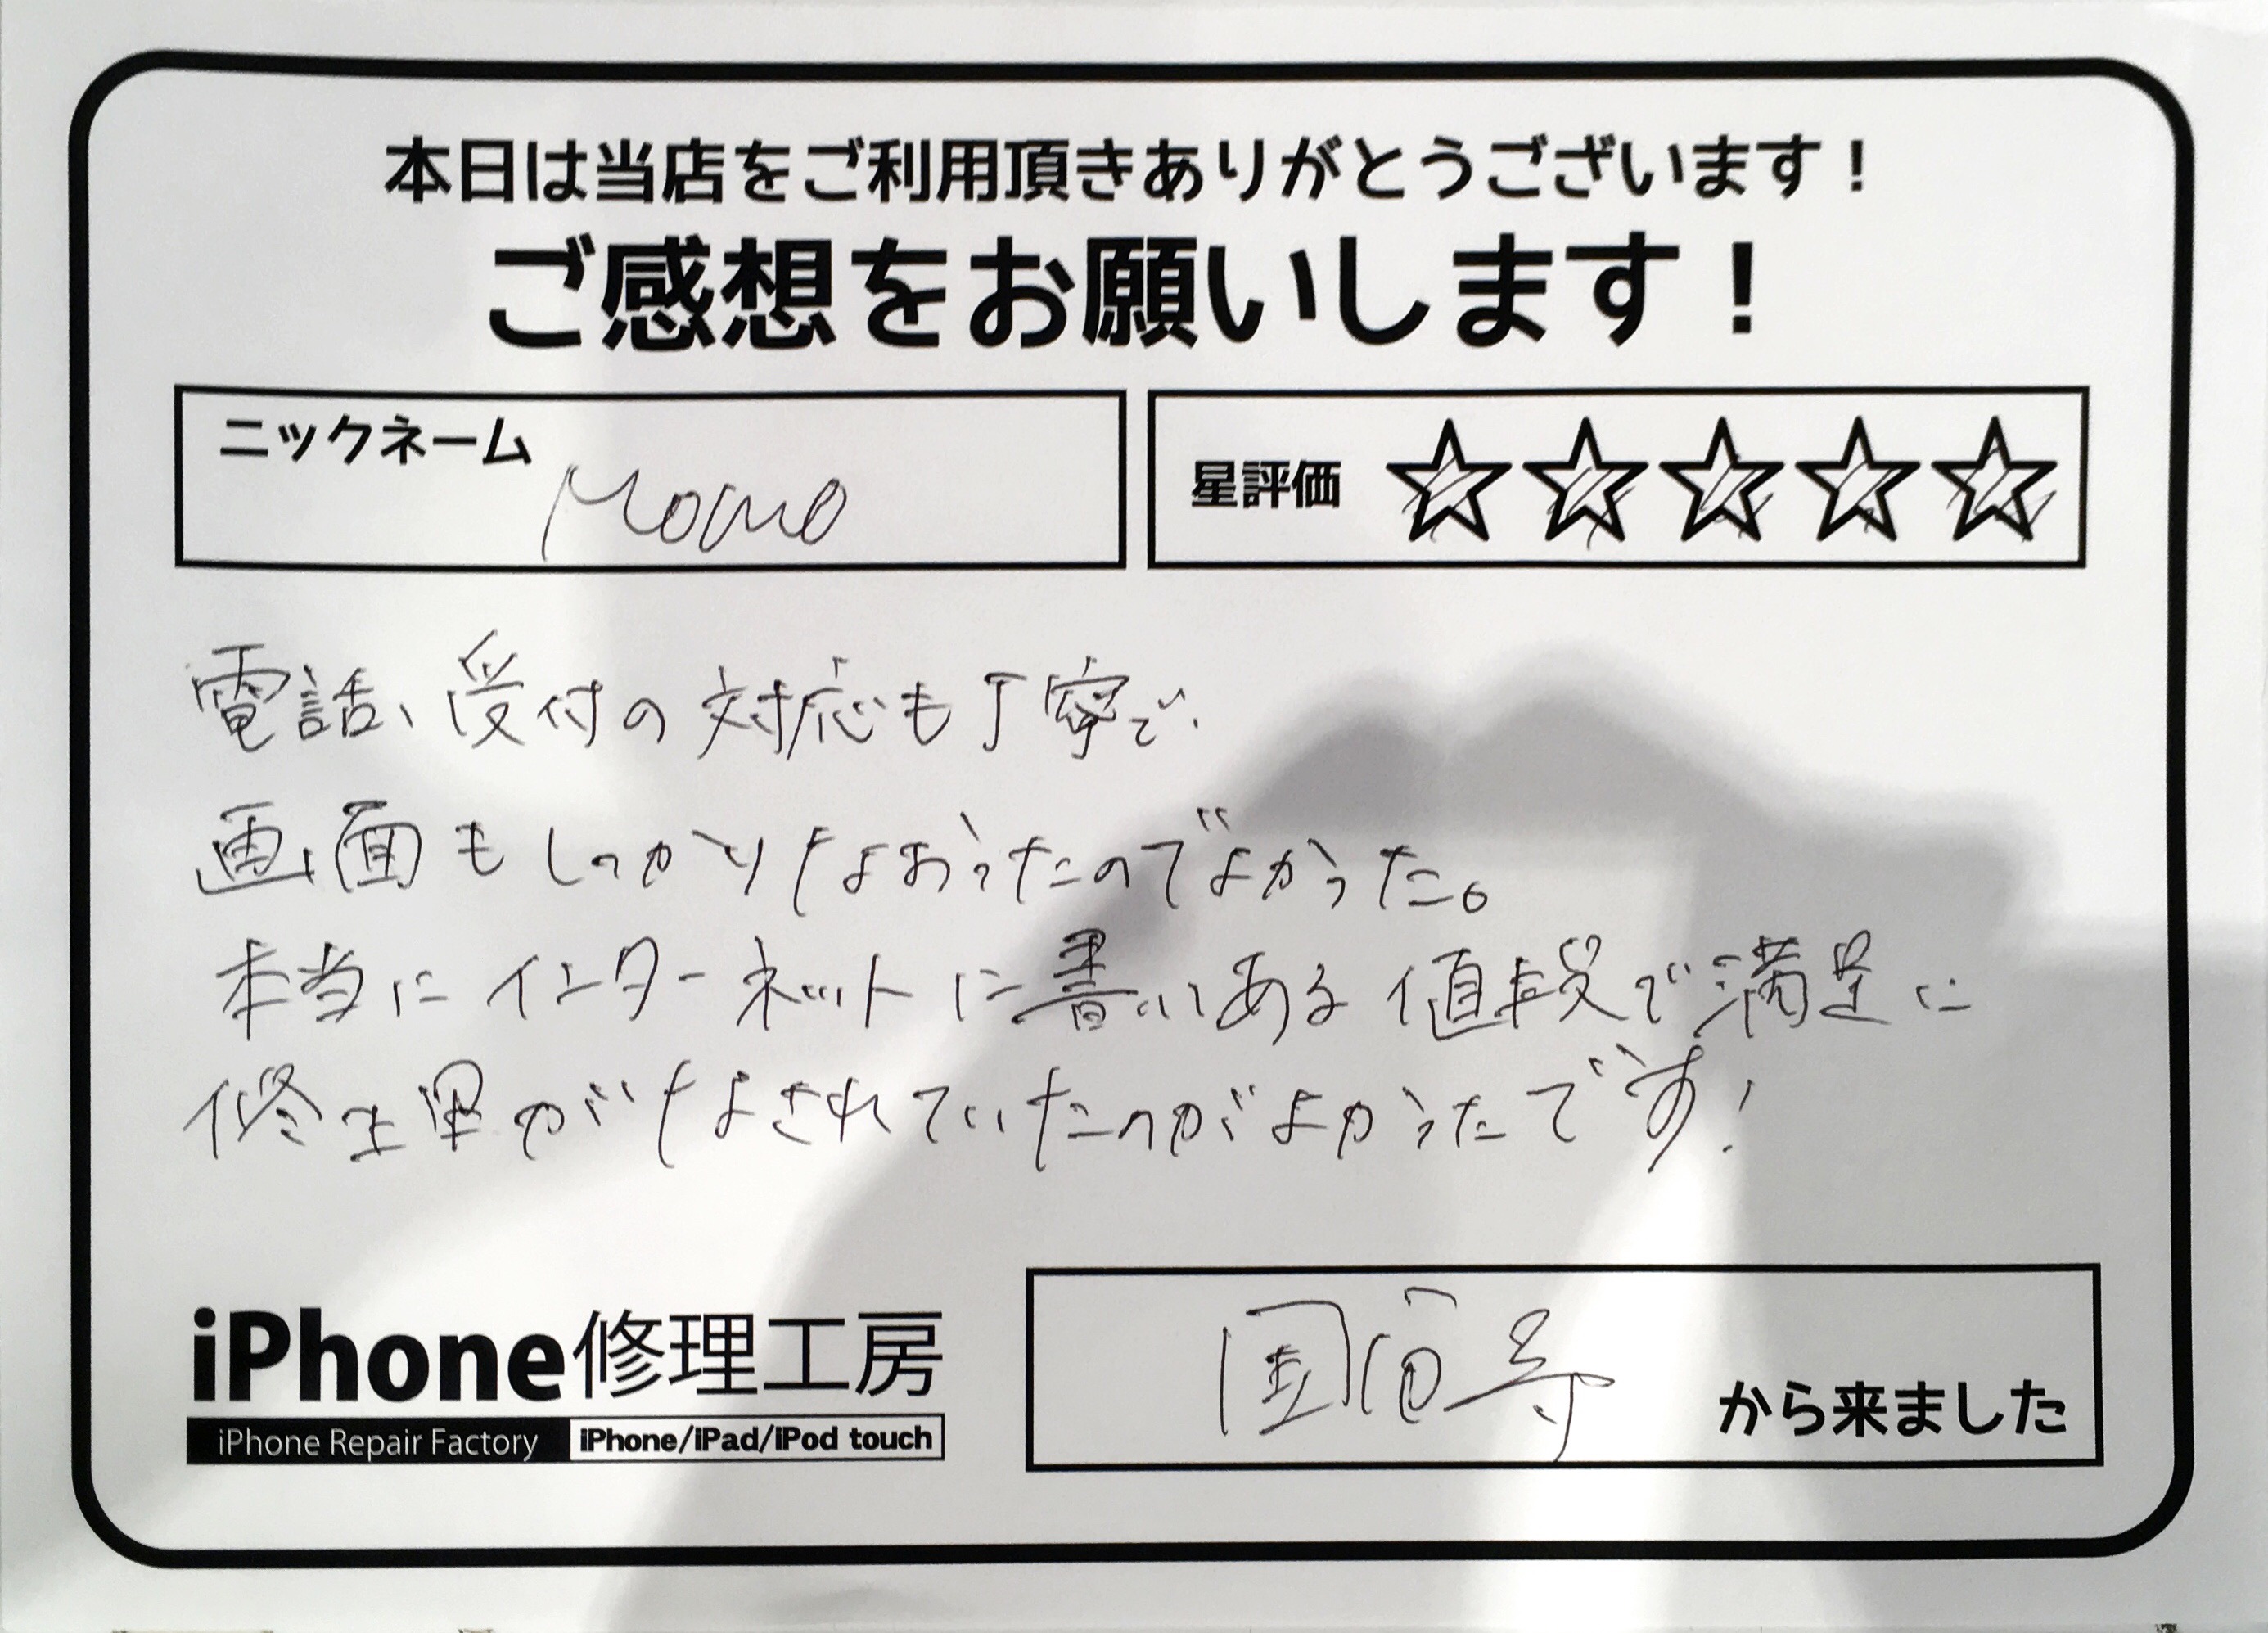 本日は当店をご利用頂きありがとうございます!
ご感想をお願いします!
ニックネーム
Momo
星評価 ☆☆☆☆☆
電話、受付の対応も丁寧で、
画面もしっかりなおったのでよかった。
本当にインターネットに書いある値段で満足に
修理がなされていたのがよかったです!
iPhone修理工房
iPhone Repair Factory iPhone/iPad/iPod touch
国分寺 から来ました